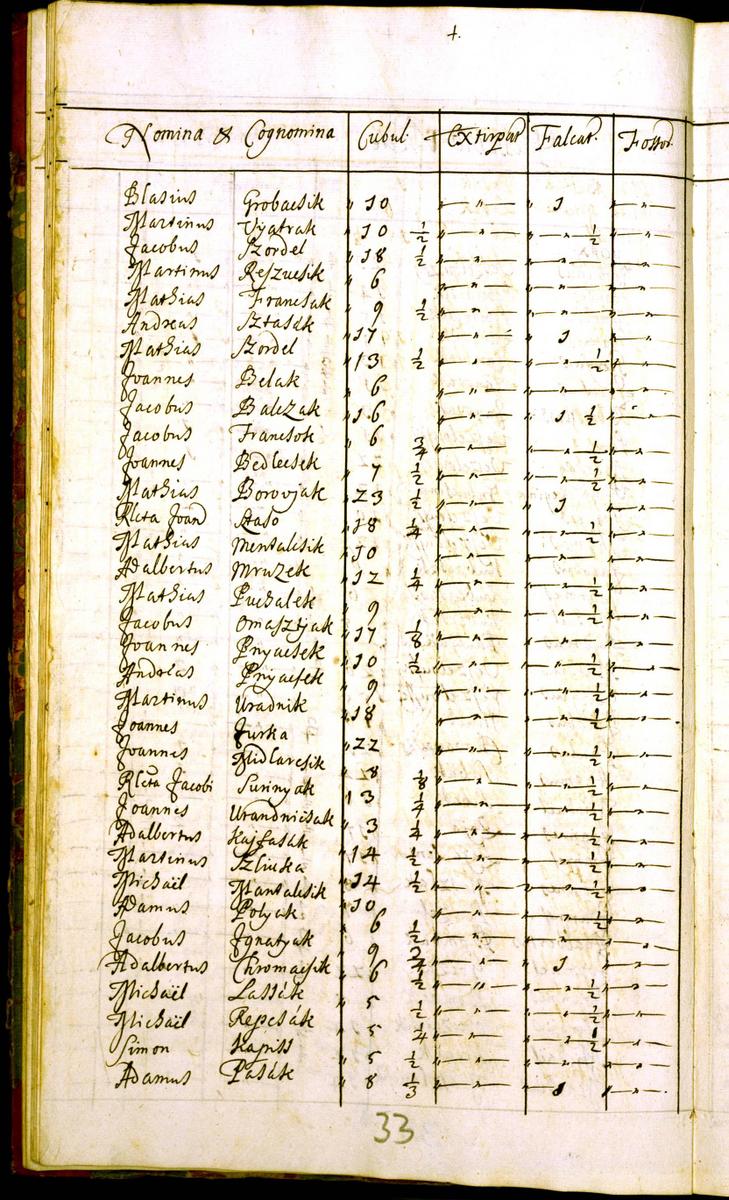 4.
Nomina & Cognomina Cubul. Extirpat. Falcat. Fossor.
Blasius Grobacsik " 10 " 1 "
Martinus Vjatrak " 10 1/2 " " 1/2 "
Jacobus Szordel " 18 1/2 " " "
Martinus Reszucsik " 6 " " "
Mathias Francsak " 9 1/2 " " "
Andreas Sztasák " 17 " 1 "
Mathias Szordel " 13 1/2 " " 1/2 "
Joannes Belak " 6 " " "
Jacobus Balczak " 16 " 1 1/2 "
Jacobus Francsok " 6 3/4 " " 1/2 "
Joannes Bedlecsek " 7 1/2 " " 1/2 "
Mathias Borovjak " 23 1/2 " 1 "
Rlcta Joan Staso " 18 1/4 " " 1/2 "
Mathias Mentalcsik " 10 " " "
Adalbertus Mruzek " 12 1/4 " " 1/2 "
Mathias Puchalek " 9 " " 1/2 "
Jacobus Omasztjak " 17 1/8 " " "
Joannes Pnyacsek " 10 1/2 " " 1/2 "
Andreas Pnyacsek " 9 " " 1/2 "
Martinus Uradnik " 18 " " 1/2 "
Joannes Jurka " 22 " " 1/2 "
Joannes Midlarcsik " 8 1/8 " " 1/2 "
Rlcta Jacobi Surinyak " 13 1/4 " " 1/2 "
Joannes Urandnicsak " 3 1/4 " " 1/2 "
Adalbertus Kajfasák " 14 1/2 " " 1/2 "
Martinus Szlivka " 14 1/2 " " 1/2 "
Michaël Mantalcsik " 10 " " 1/2 "
Adamus Polyak " 6 1/2 " " "
Jacobus Ignatyak " 9 3/4 " 1 "
Adalbertus Chromacsik " 6 1/2 " " 1/2 "
Michaël Lassák " 5 1/2 " " 1/2 "
Michaël Repcsák " 5 1/4 " " 1/2 "
Simon Kapiss " 5 1/2 " " "
Adamus Pasák " 8 1/3 " 1 "
33